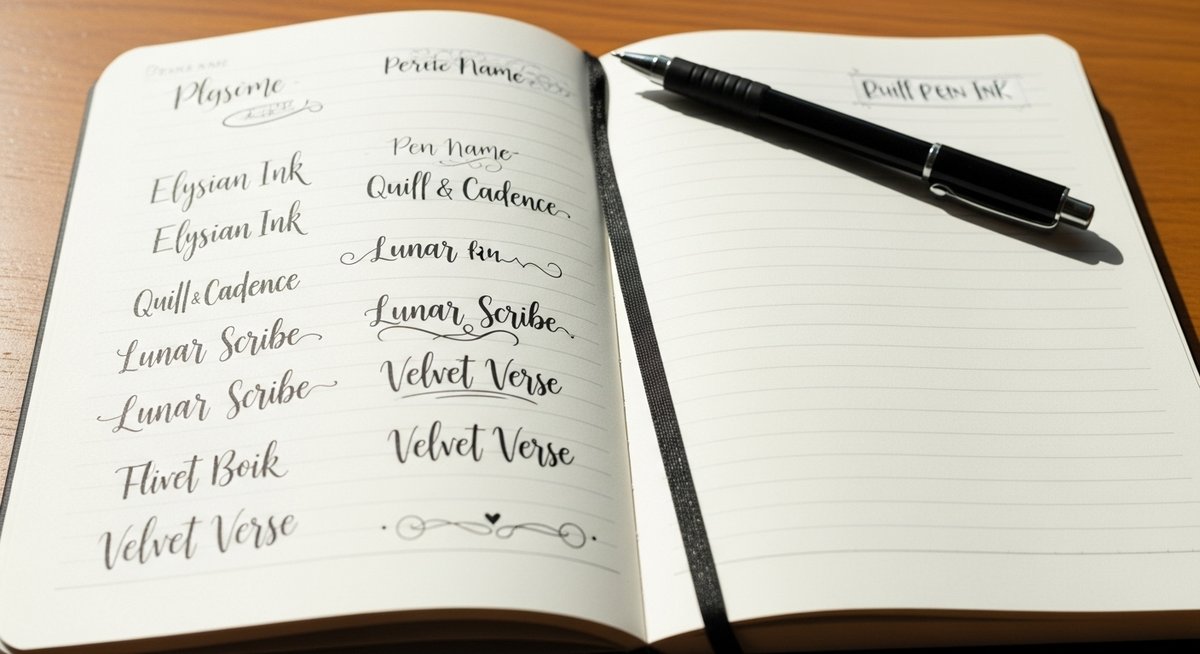 Plgsime
Elysian Ink
Elysian Ink
Quill & Cadence
Lunar Scribe
Lunar Scribe
Flivet Boik
Velvet Verse
Name
Pen Name
Quill & Cadence
Lunar
Lunar Scribe
Velvet Verse
Velvet Verse
Ruill PEN INK